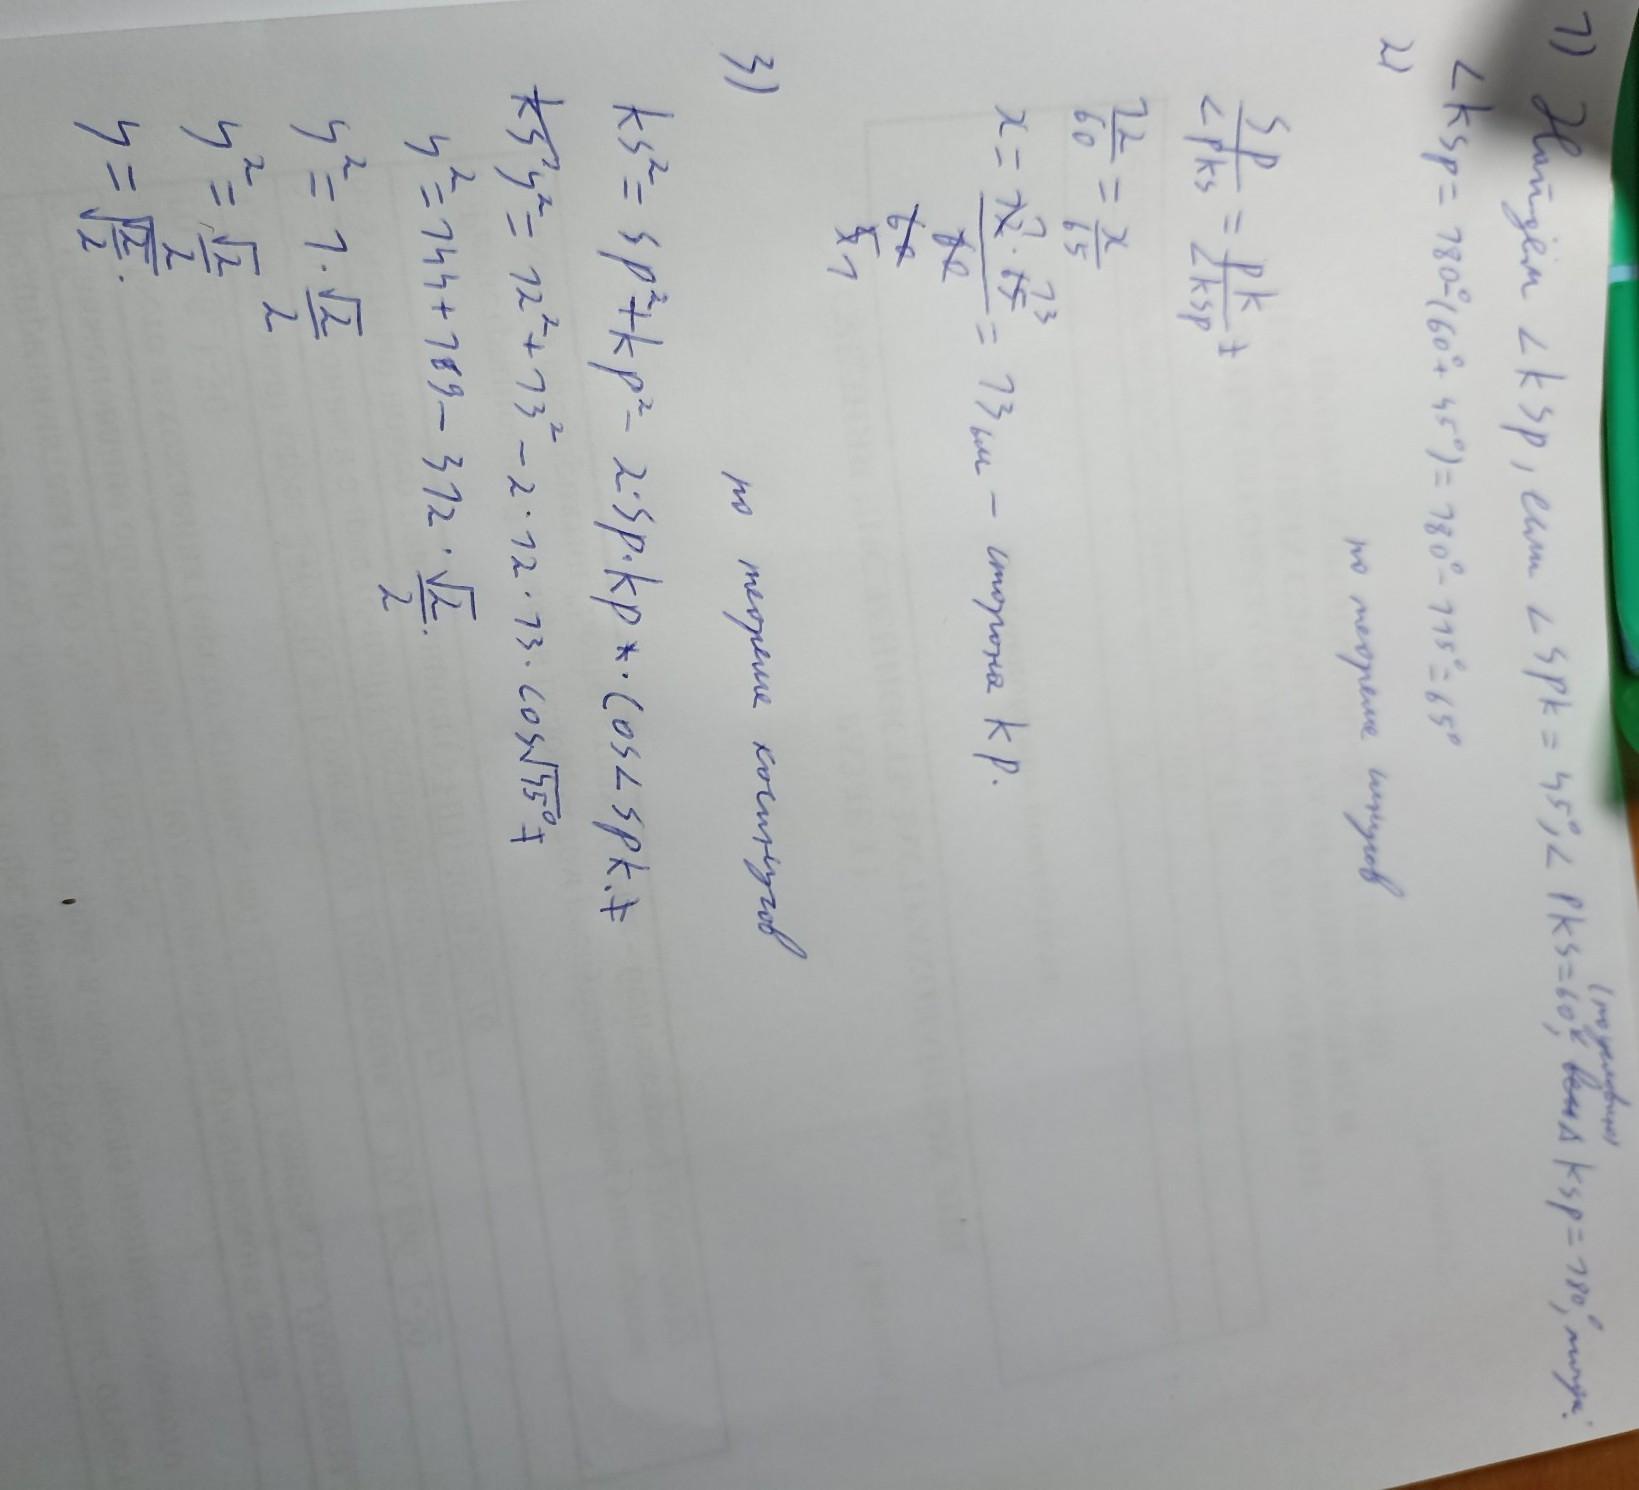 1) Найдём ∠KSP, если ∠SPK = 45°, ∠PKS = 60°, (по условию) △KSP = 180°, тогда:
∠KSP = 180° (60° + 45°) = 180° - 115° = 65°
2) по теореме синусов
SP/∠PKS = PK/∠KSP
12/60 = x/65
x = 12 · 65/60 = 13 см - сторона KP.
3) по теореме косинусов
KS² = SP² + KP² - 2·SP·KP · COS∠SPK.
y² = 12² + 13² - 2 · 12 · 13 · COS√45°
y² = 144 + 169 - 312 · √2/2.
y² = 1 · √2/2
y² = √2/2
y = √√2/2.